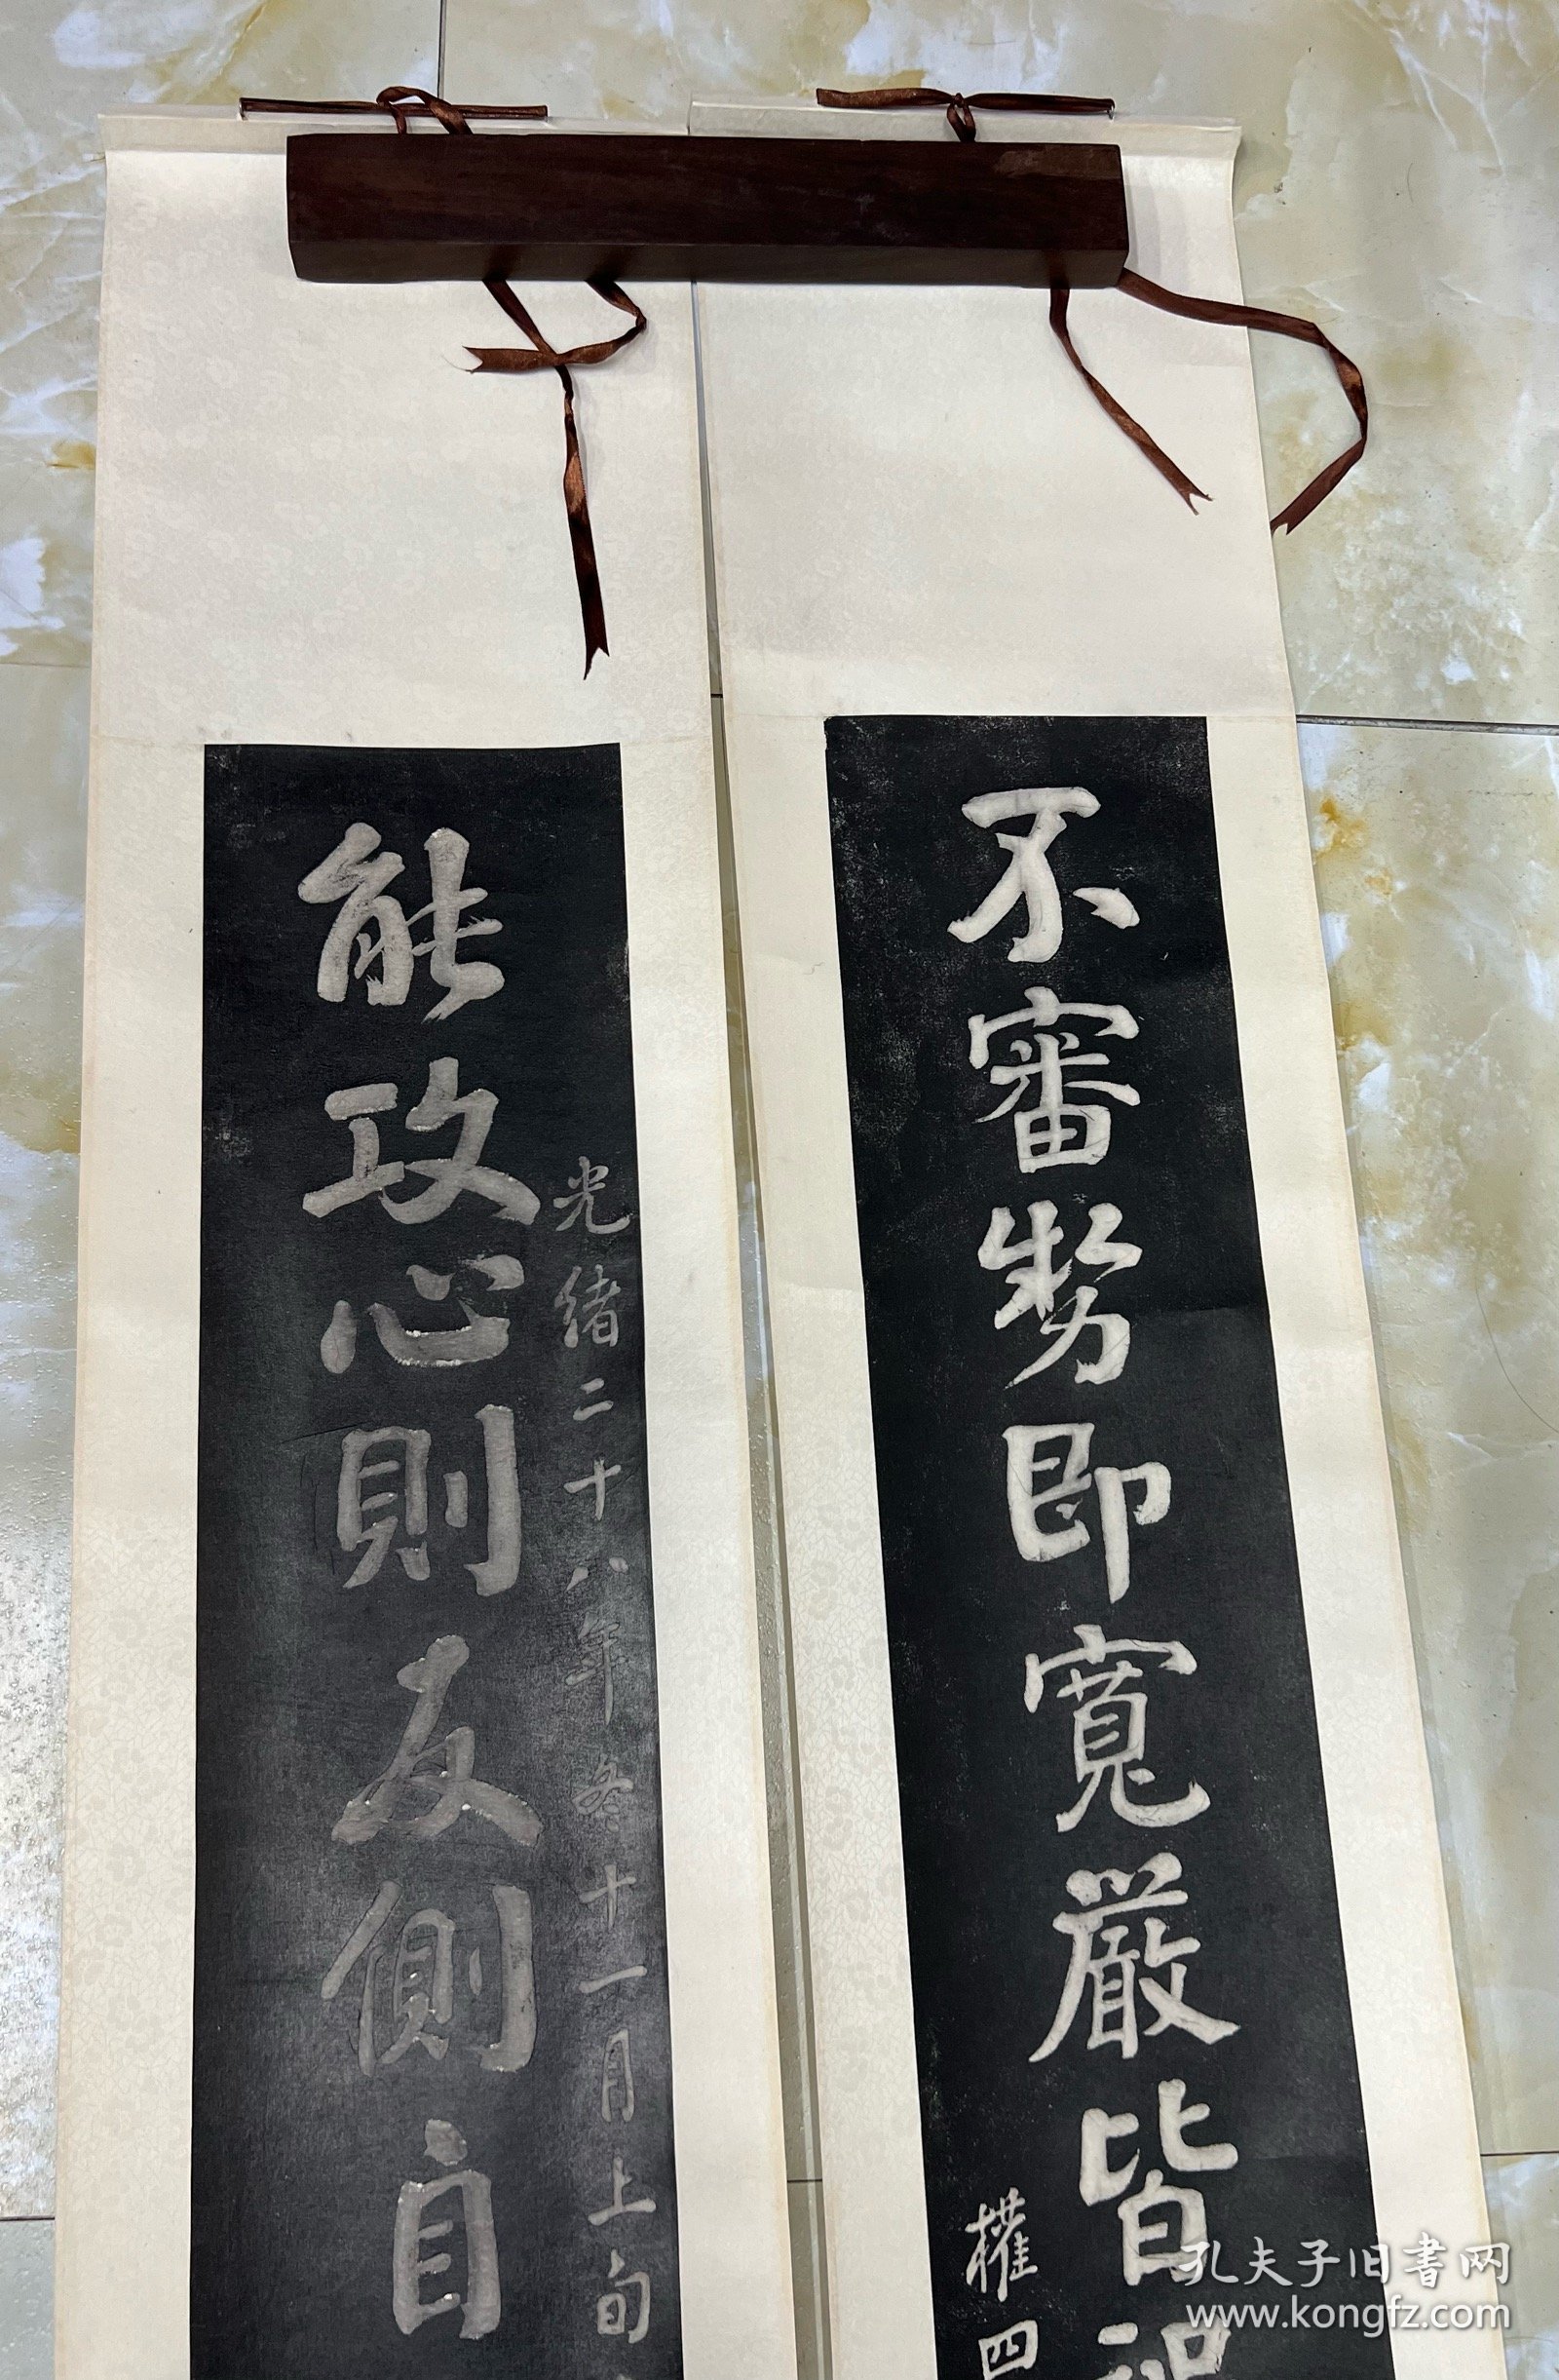 能攻心則反側自
光緒二十八年冬十一月上旬
不審勢即寬嚴皆
權四
孔夫子旧書网
www.kongfz.com